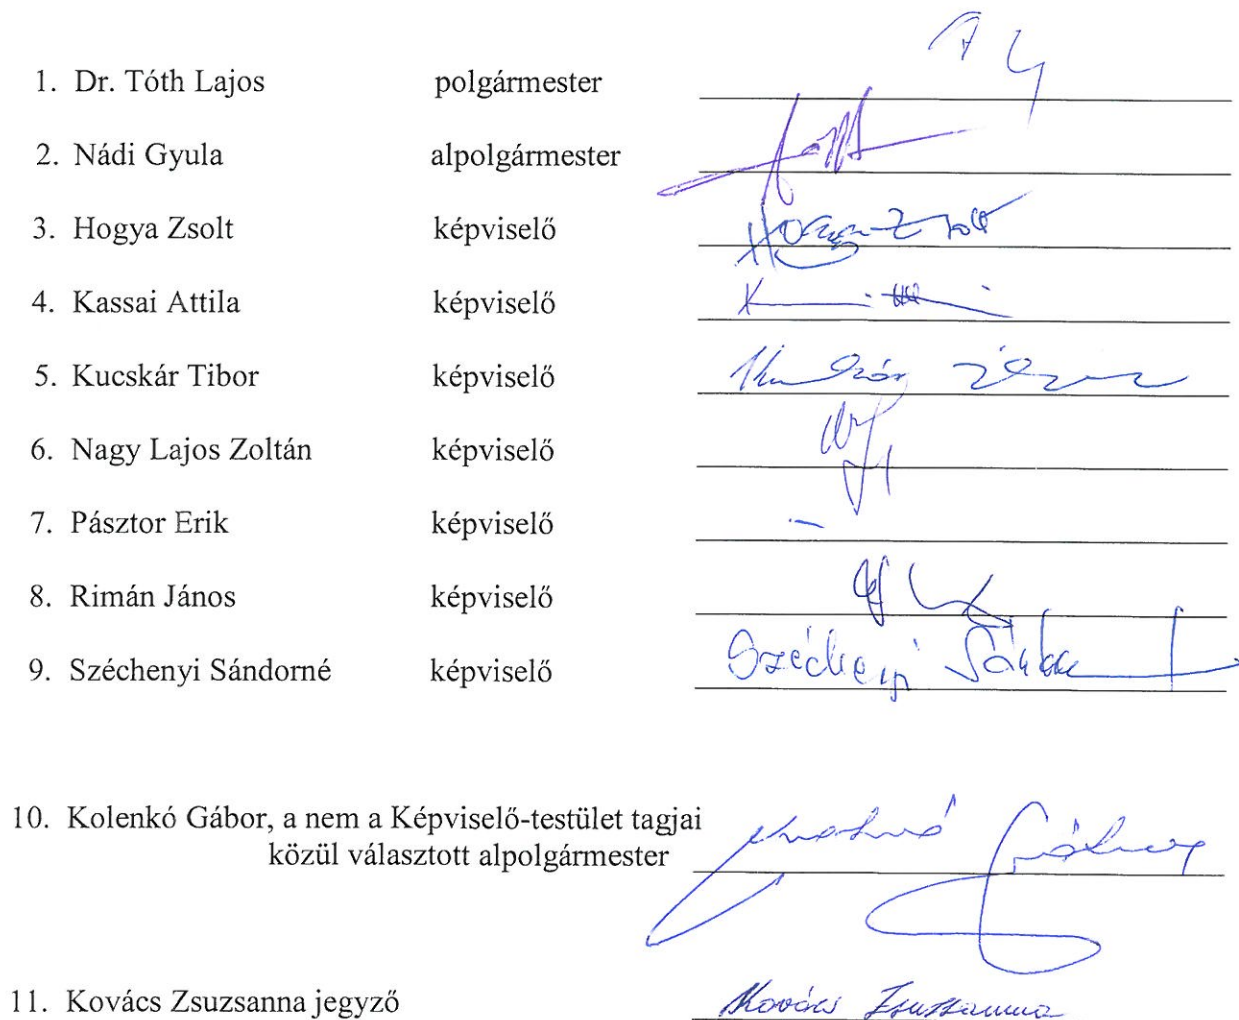 1. Dr. Tóth Lajos polgármester
2. Nádi Gyula alpolgármester
3. Hogya Zsolt képviselő Hogya Zsolt
4. Kassai Attila képviselő
5. Kucskár Tibor képviselő
6. Nagy Lajos Zoltán képviselő
7. Pásztor Erik képviselő –
8. Rimán János képviselő
9. Széchenyi Sándorné képviselő Széchenyi
10. Kolenkó Gábor, a nem a Képviselő-testület tagjai
közül választott alpolgármester
11. Kovács Zsuzsanna jegyző Kovács Zsuzsanna